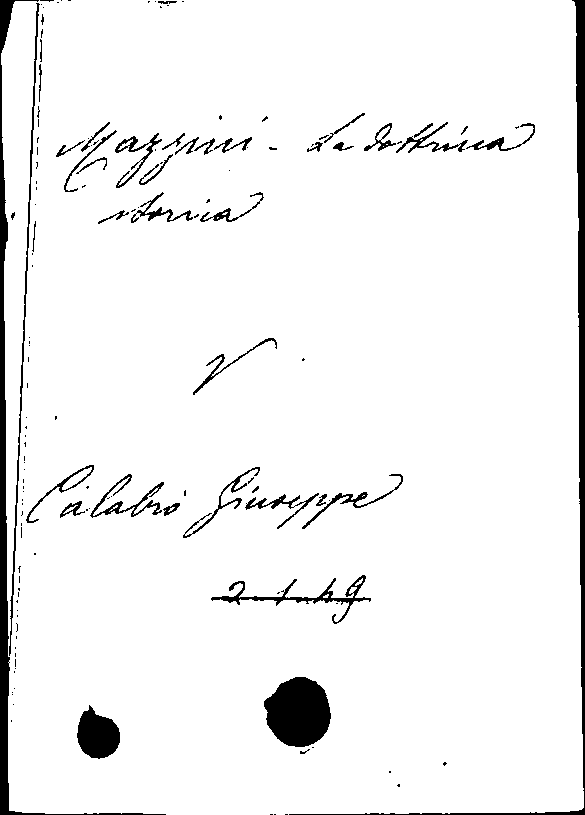 Mazzini - La dottrina
storica
V
Calabrò Giuseppe
2-1-49